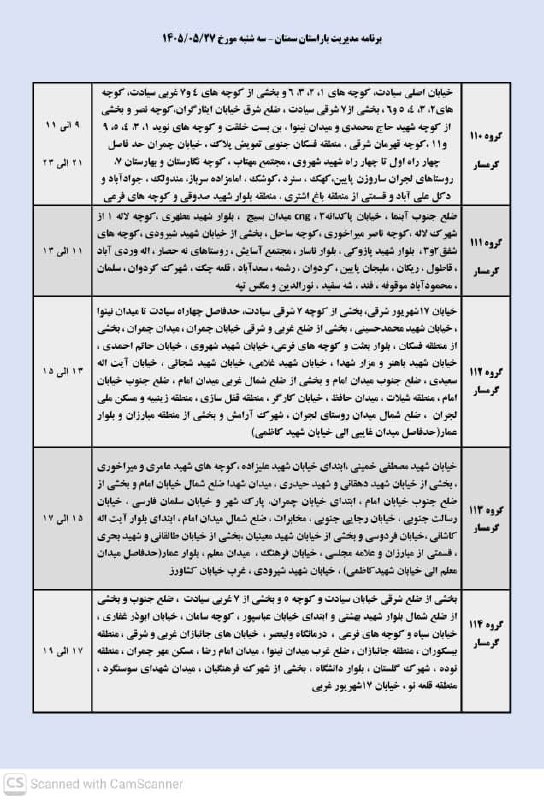 برنامه مدیریت بار استان سمنان - سه شنبه مورخ ۱۴۰۵/۰۵/۲۷
گروه ۱۱۰
گرمسار
خیابان اصلی سیادت، کوچه های ۱، ۲، ۳، ۶ و بخشی از کوچه های ۴ و۷ غربی سیادت، کوچه
های۲، ۳، ۴، ۵ و۶ ، بخشی از۷ شرقی سیادت ، ضلع شرق خیابان ایثارگران،کوچه نصر و بخشی
از کوچه شهید حاج محمدی و میدان نینوا ، بن بست خلقت و کوچه های نوید ۱، ۳، ۴، ۵، ۹
و۱۱ ،کوچه قهرمان شرقی ، منطقه فسکان جنوبی تعویض پلاک ، خیابان چمران حد فاصل
چهار راه اول تا چهار راه شهید شهروی ، مجتمع مهتاب ، کوچه نگارستان و بهارستان ۷،
روستاهای لجران ساروزن پایین،کهک ، سنرد ،کوشک ، امامزاده سرباز، مندولک ، جوادآباد و
دکل علی آباد و قسمتی از منطقه باغ اشتری ، منطقه بلوار شهید صدوقی و کوچه های فرعی
۹ الی ۱۱
۲۱ الی ۲۳
گروه ۱۱۱
گرمسار
ضلع جنوب آبنما ، خیابان پاکدانه۲ ، cng میدان بسیج ، بلوار شهید مطهری ،کوچه لاله ۱ از
شهرک لاله ،کوچه ناصر میراخوری ،کوچه ساحل ، بخشی از خیابان شهید شیرودی ،کوچه های
شفق۲و۳، بلوار شهید پازوکی ، بلوار ناسار ، مجتمع آسایش ، روستاهای ده حصار ، اله وردی آباد
، فاطول ، ریکان ، ملیجان پایین ، کردوان ، رشمه ، سعدآباد ، قلعه جگ ، شهرک کردوان ، سلمان
، محمودآباد موقوفه ، فند ، شه سفید ، نورالدین و مگس تپه
۱۱ الی ۱۳
گروه ۱۱۲
گرمسار
خیابان ۱۷شهریور شرقی، بخشی از کوچه ۷ شرقی سیادت، حدفاصل چهاراه سیادت تا میدان نینوا
، خیابان شهید محمدحسینی ، بخشی از ضلع غربی و شرقی خیابان چمران، میدان چمران ، بخشی
از منطقه فسکان ، بلوار بعثت و کوچه های فرعی، خیابان شهید شهروی ، خیابان حاتم احمدی ،
خیابان شهید باهنر و مزار شهدا ، خیابان شهید غلامی، خیابان شهید شجائی ، خیابان آیت اله
سعیدی ، ضلع جنوب میدان امام و بخشی از ضلع شمال غربی میدان امام ، ضلع جنوب خیابان
امام ، منطقه شیلات ، میدان حافظ ، خیابان کارگر ، منطقه قفل سازی ، منطقه زینبیه و مسکن ملی
لجران ، ضلع شمال میدان روستای لجران ، شهرک آرامش و بخشی از منطقه مبارزان و بلوار
عمار(حدفاصل میدان غایبی الی خیابان شهید کاظمی)
۱۳ الی ۱۵
گروه ۱۱۳
گرمسار
خیابان شهید مصطفی خمینی ،ابتدای خیابان شهید علیزاده ،کوچه های شهید عامری و میراخوری
، بخشی از خیابان شهید دهقانی و شهید حیدری ، میدان شهدا ضلع شمال خیابان امام و بخشی از
ضلع جنوب خیابان امام ، ابتدای خیابان چمران، پارک شهر و خیابان سلمان فارسی ، خیابان
رسالت جنوبی ، خیابان رجایی جنوبی ، مخابرات ، ضلع شمال میدان امام ، ابتدای بلوار آیت اله
کاشانی ،خیابان فردوسی و بخشی از خیابان شهید معینیان ،بخشی از خیابان طالقانی و شهید بحری
، قسمتی از مبارزان و علامه مجلسی ، خیابان فرهنگ ، میدان معلم ، بلوار عمار(حدفاصل میدان
معلم الی خیابان شهیدکاظمی) ، خیابان شهید شیرودی ، غرب خیابان کشاورز
۱۵ الی ۱۷
گروه ۱۱۴
گرمسار
بخشی از ضلع شرقی خیابان سیادت و کوچه ۵ و بخشی از ۷ غربی سیادت ، ضلع جنوب و بخشی
از ضلع شمال بلوار شهید بهشتی و ابتدای خیابان عباسپور ، کوچه سامان ، خیابان ابوذر غفاری ،
خیابان سپاه و کوچه های فرعی ، درمانگاه ولیعصر ، خیابان های جانبازان غربی و شرقی ، منطقه
بیسکوران ، منطقه جانبازان ، ضلع غرب میدان نینوا ، میدان امام رضا ، مسکن مهر چمران ، منطقه
نوده ، شهرک گلستان ، بلوار دانشگاه ، بخشی از شهرک فرهنگیان ، میدان شهدای سوسنگرد ،
منطقه قلعه نو ، خیابان ۱۷شهریور غربی
۱۷ الی ۱۹
CS Scanned with CamScanner